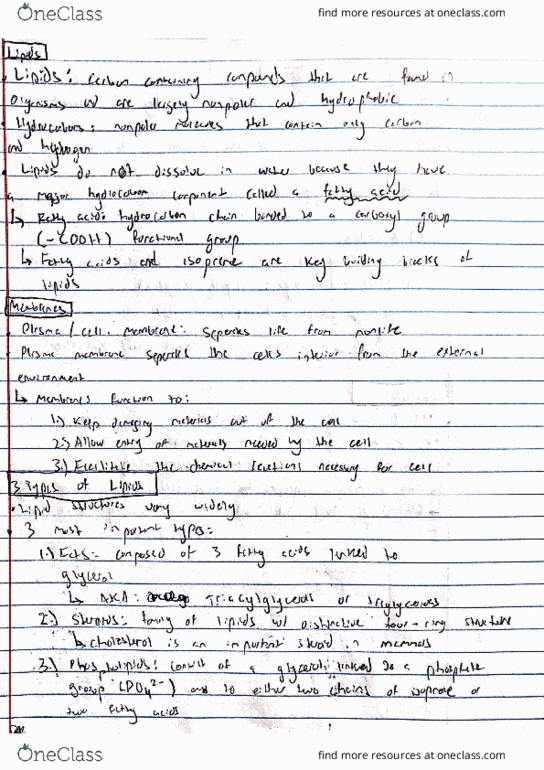 OneClass
find more resources at oneclass.com
Lipids
• Lipids: carbon containing compounds that are found in
organisms and are largely nonpolar and hydrophobic
• Hydrocarbons: nonpolar molecules that contain only carbon
and hydrogen
• Lipids do not dissolve in water because they have
a major hydrocarbon component called a fatty acid
↳ Fatty acid: hydrocarbon chain bonded to a carboxyl group
(-COOH) functional group
↳ Fatty acids and isoprene are key building blocks of
lipids
Membranes
• Plasma / cell membrane: separates life from nonlife
• Plasma membrane separates the cells interior from the external
environment
↳ Membranes function to:
1.) Keep damaging materials out of the cell
2.) Allow entry of materials needed by the cell
3.) Facilitate the chemical reactions necessary for cell
3 Types of Lipids
• Lipid structures vary widely
• 3 most important types:
1.) Fats: composed of 3 fatty acids linked to
glycerol
↳ AKA: Triacylglycerols or triglycerides
2.) Steroids: family of lipids w/ distinctive four-ring structure
↳ cholesterol is an important steroid in mammals
3.) Phospholipids: consist of a glycerol linked to a phosphate
group (PO4 2-) and to either two chains of isoprene or
two fatty acids
OneClass
find more resources at oneclass.com